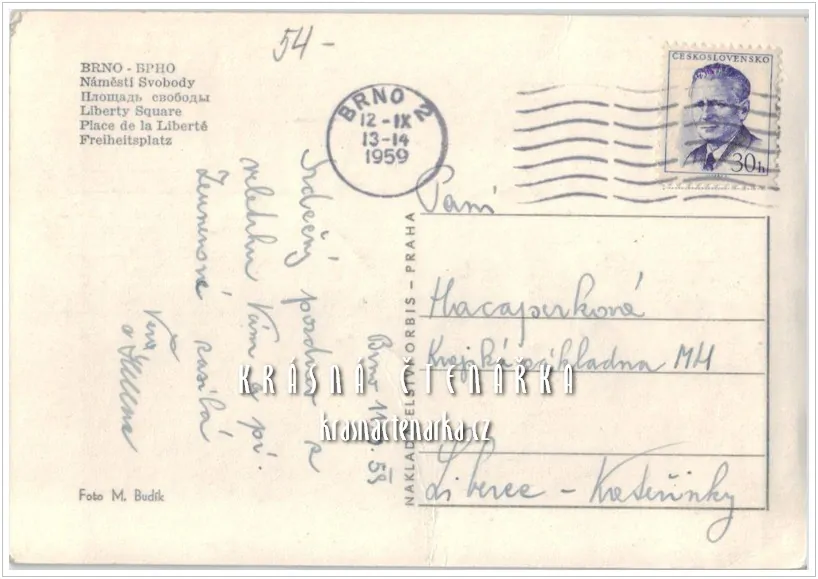 54-
BRNO - БРНО
Náměstí Svobody
Площадь свободы
Liberty Square
Place de la Liberté
Freiheitsplatz
BRNO 2
12 -IX
13-14
1959
ČESKOSLOVENSKO
30h
Paní
Hacaperková
Krajská základna MH
Liberec - Kateřinky
NAKLADATELSTVÍ ORBIS - PRAHA
Brno 59
Srdečný pozdrav z
veletrhu Vám a pí.
Zemínové zasílá
Věra
a Helena
KRÁSNÁ ČTENÁRKA
krasnactenarka.cz
Foto M. Budík